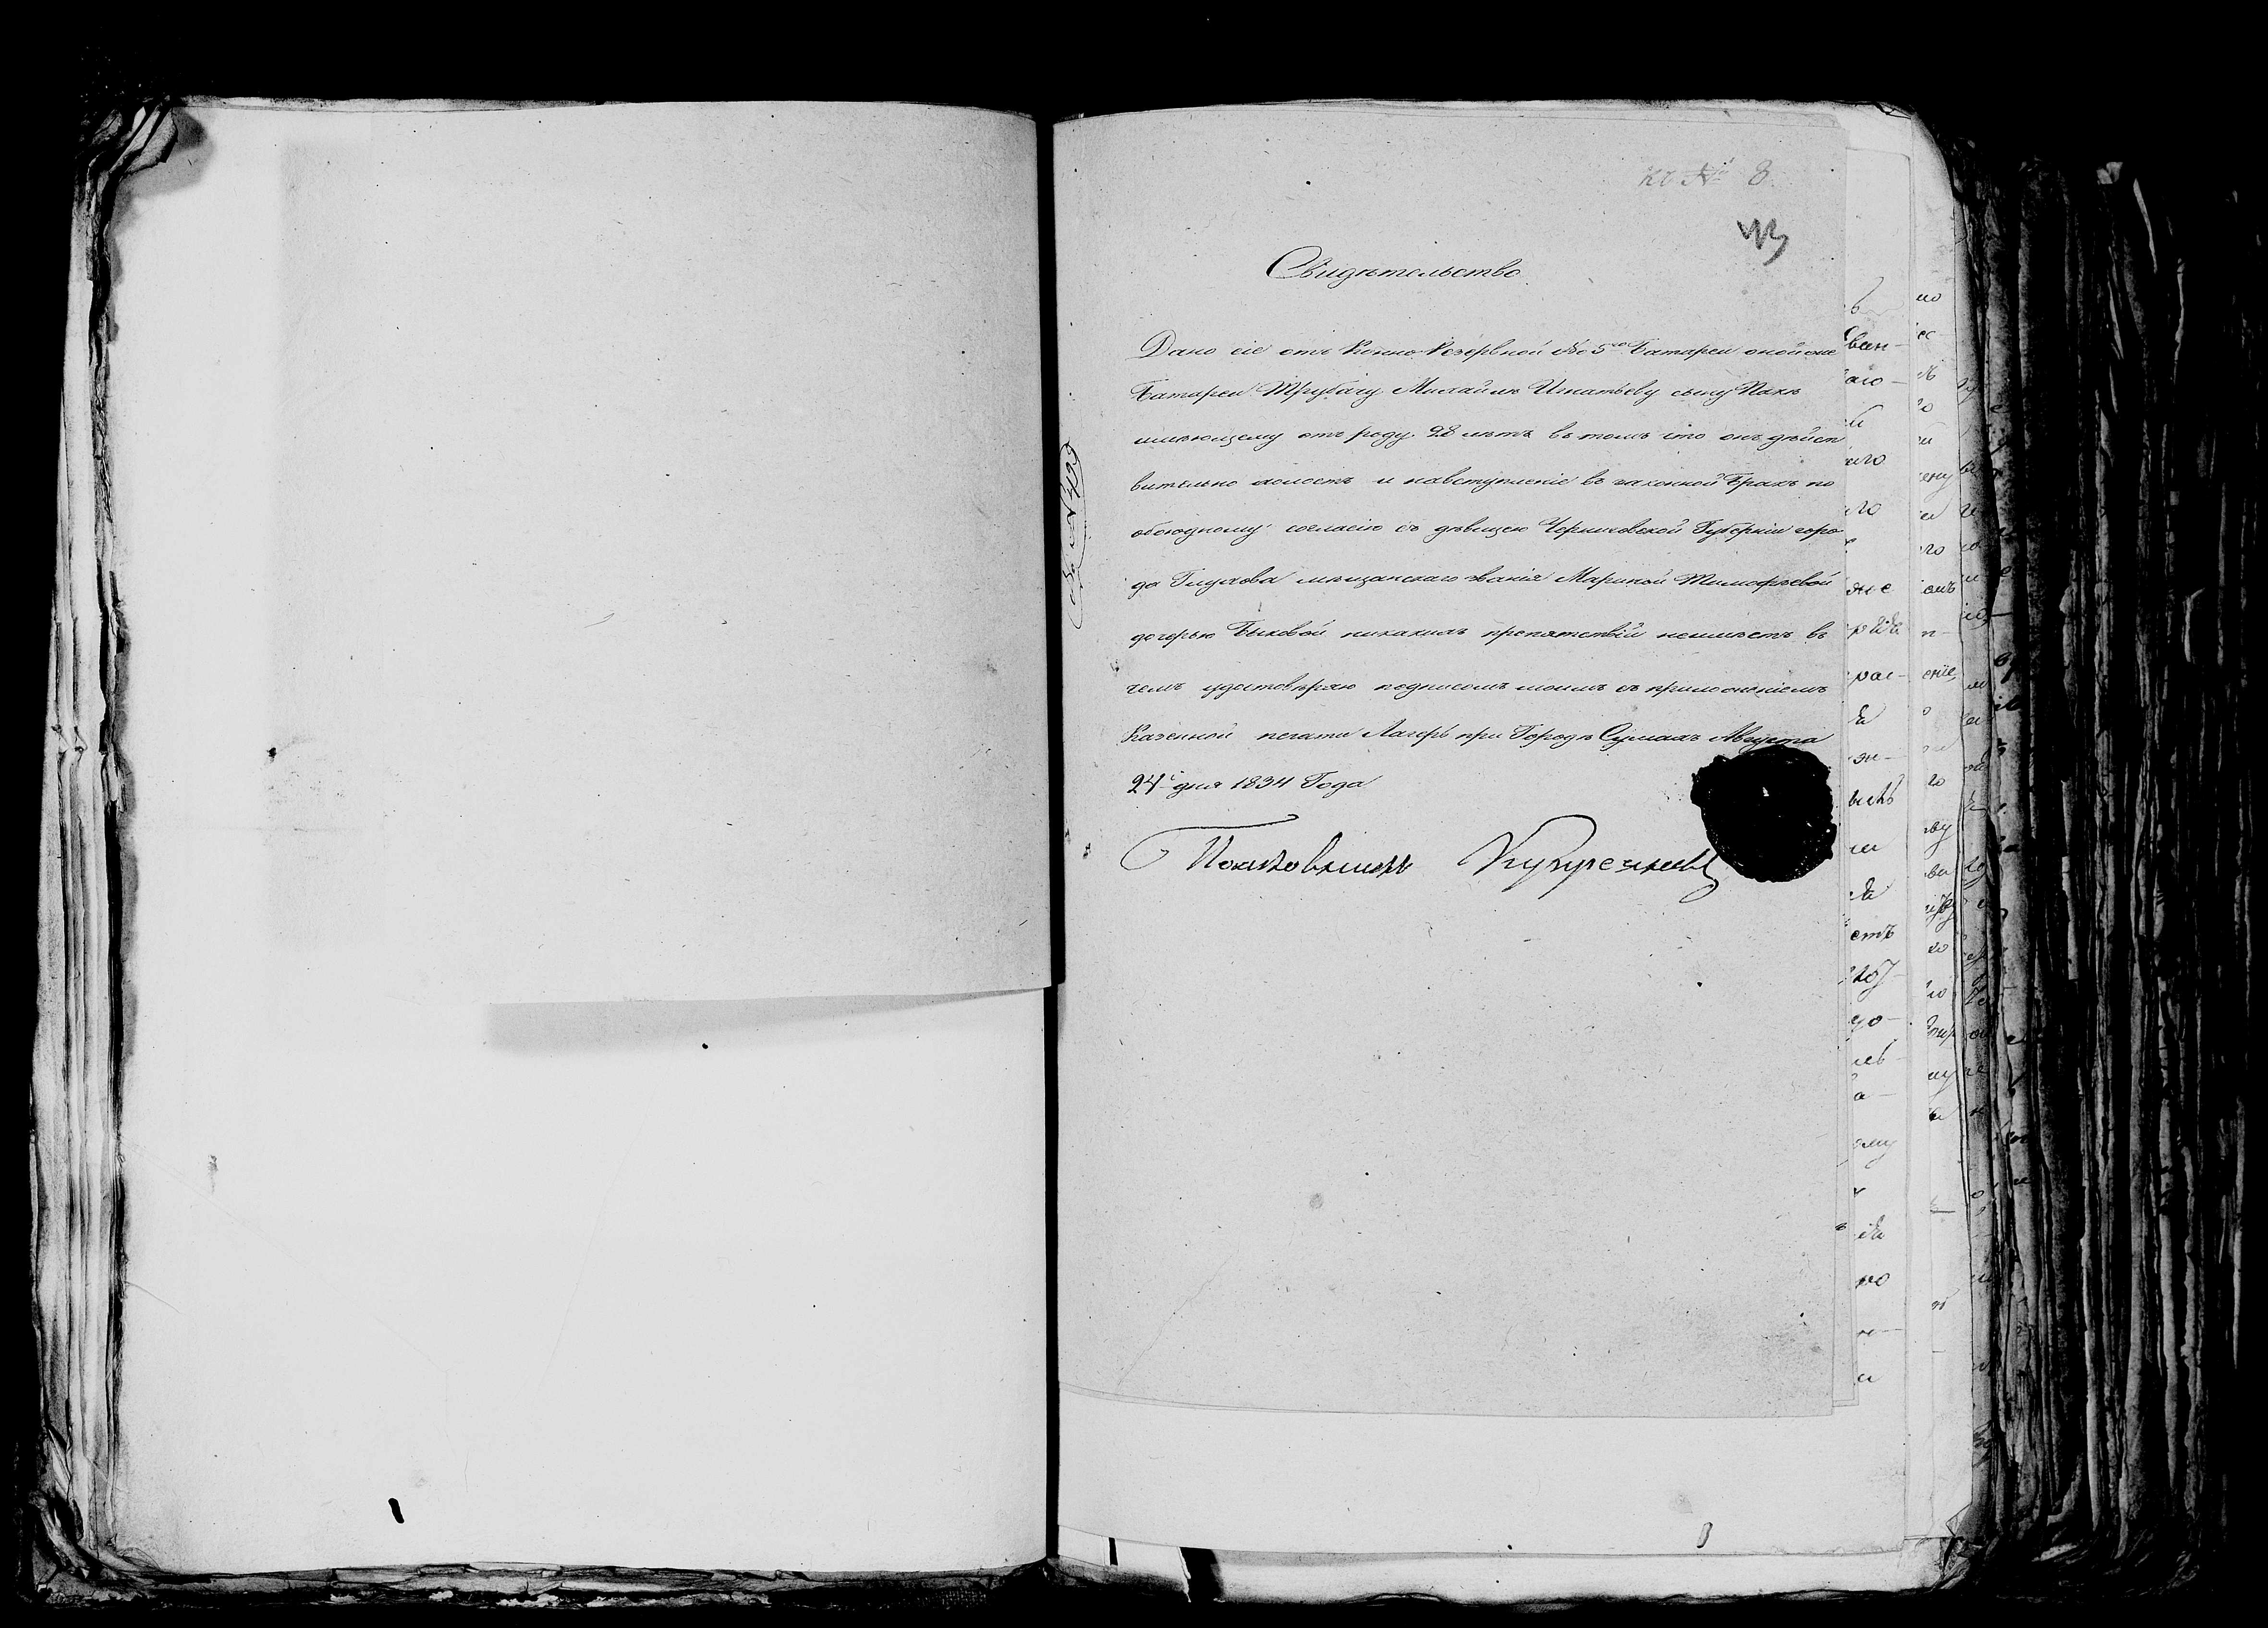 къ № 8
43
Свидѣтельство
Дано сіе отъ Конно Резервной № 5го Батареи оной же
Батареи Трубачу Михайлѣ Игнатьеву сыну
имѣющему отъ роду 28 лѣтъ въ томъ что онъ дѣйст
вительно холостъ и навступленіе въ законной Бракъ по
обоюдному согласію съ дѣвицею Черниговской Губерніи горо
да Глухова мѣщанскаго званія Мариной Тимофѣевой
дочерью Быковой никакихъ препятствій неимѣетъ въ
чемъ удостовѣряю подписомъ моимъ съ приложеніемъ
Казенной печати Лагерь при Городѣ Сумахъ Августа
24 дня 1834 Года
Полковникъ
№ 499